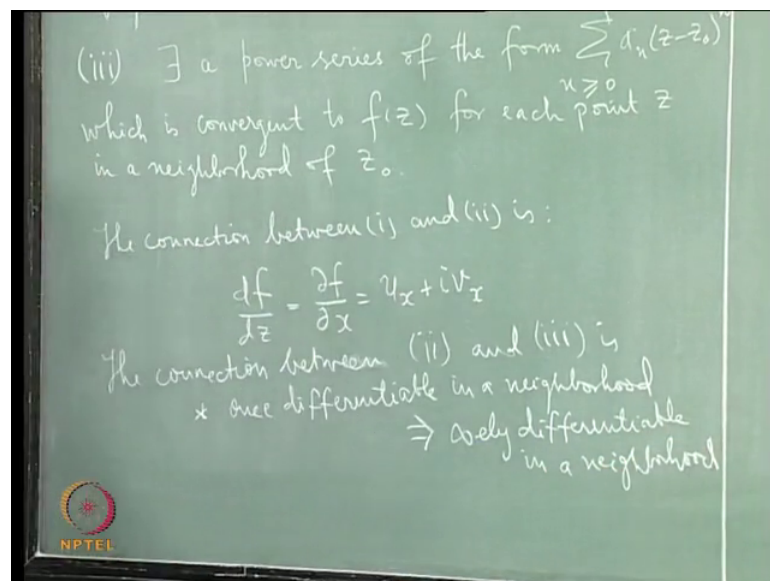 (iii) ∃ a power series of the form ∑ aₙ(z-z₀)ⁿ
n ≥ 0
which is convergent to f(z) for each point z
in a neighborhood of z₀.
The connection between (i) and (ii) is:
df/dz = ∂f/∂x = uₓ + ivₓ
The connection between (ii) and (iii) is
* once differentiable in a neighborhood
⇒ ∞ely differentiable
in a neighborhood
NPTEL